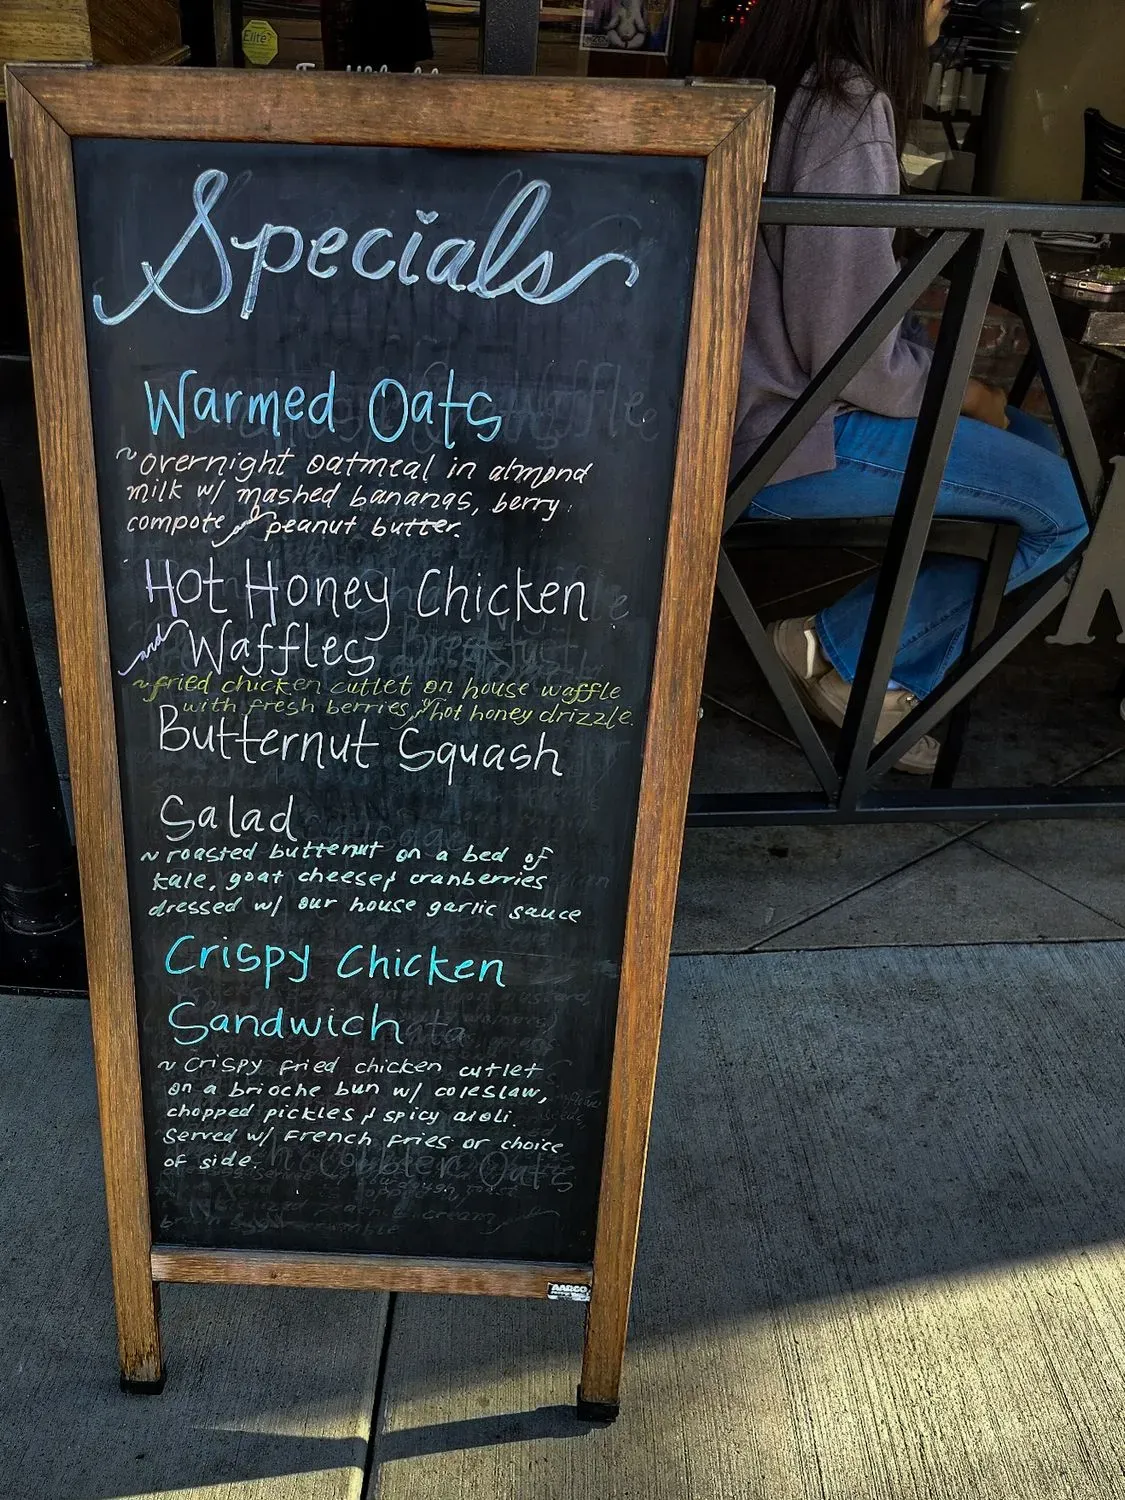 Elite
Specials
Warmed Oats
~overnight oatmeal in almond
milk w/ mashed bananas, berry
compote and peanut butter.
Hot Honey Chicken
and Waffles
~fried chicken cutlet on house waffle
with fresh berries, & hot honey drizzle.
Butternut Squash
Salad
~ roasted butternut on a bed of
kale, goat cheese & cranberries
dressed w/ our house garlic sauce
Crispy Chicken
Sandwich
~ Crispy fried chicken cutlet
on a brioche bun w/ coleslaw,
chopped pickles & spicy aioli.
Served w/ French fries or choice
of side.
Cobbler Oats
AARCO